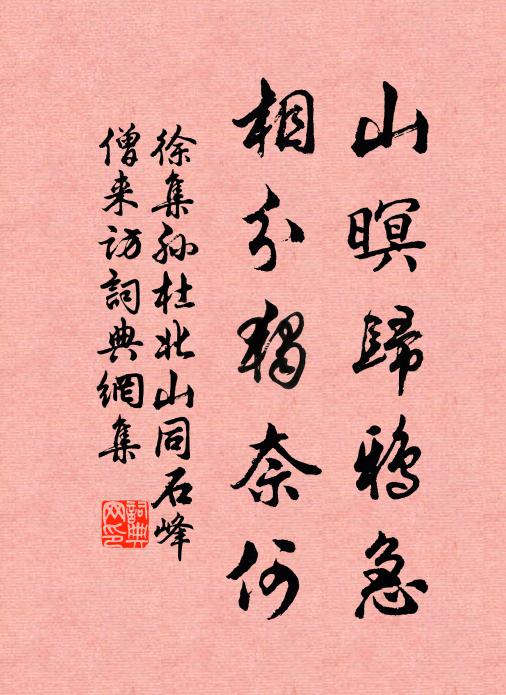 山暝歸鴉急
相分獨奈何
徐集孫杜北山同石峰
僧来訪詞典網集
詞典网印